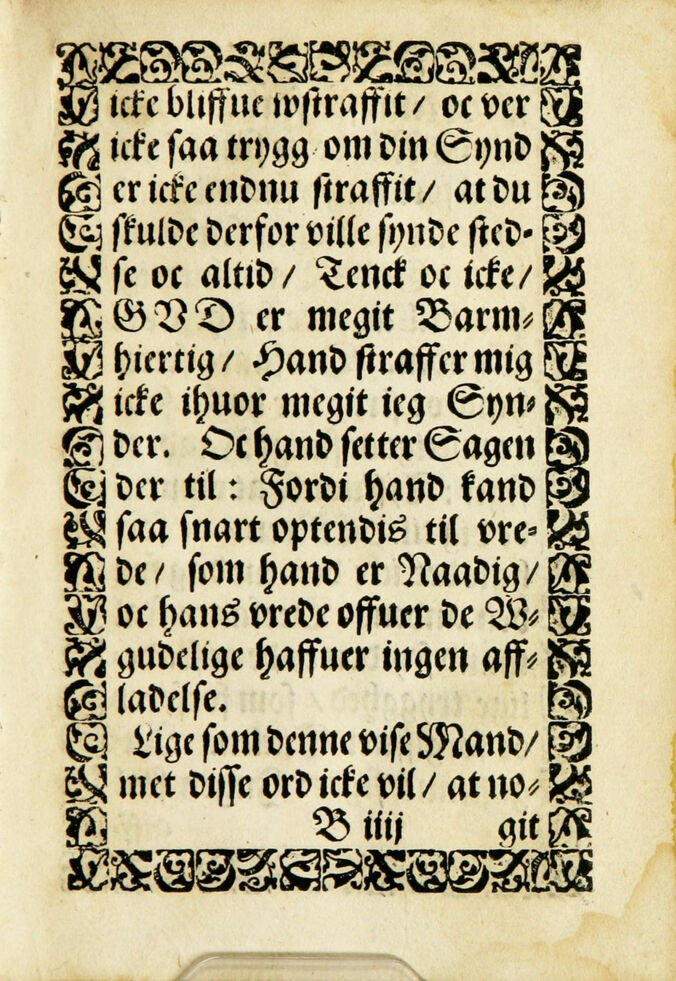 icke bliffue wstraffit / oc ver
icke saa trygg om din Synd
er icke endnu straffit / at du
skulde derfor ville synde sted-
se oc altid / Tenck oc icke /
GVD er megit Barm-
hiertig / Hand straffer mig
icke ihuor megit ieg Syn-
der. Oc hand setter Sagen
der til : Fordi hand kand
saa snart optendis til vre-
de / som hand er Naadig /
oc hans vrede offuer de W-
gudelige haffuer ingen aff-
ladelse.
Lige som denne vise Mand /
met disse ord icke vil / at no-
B iiij git